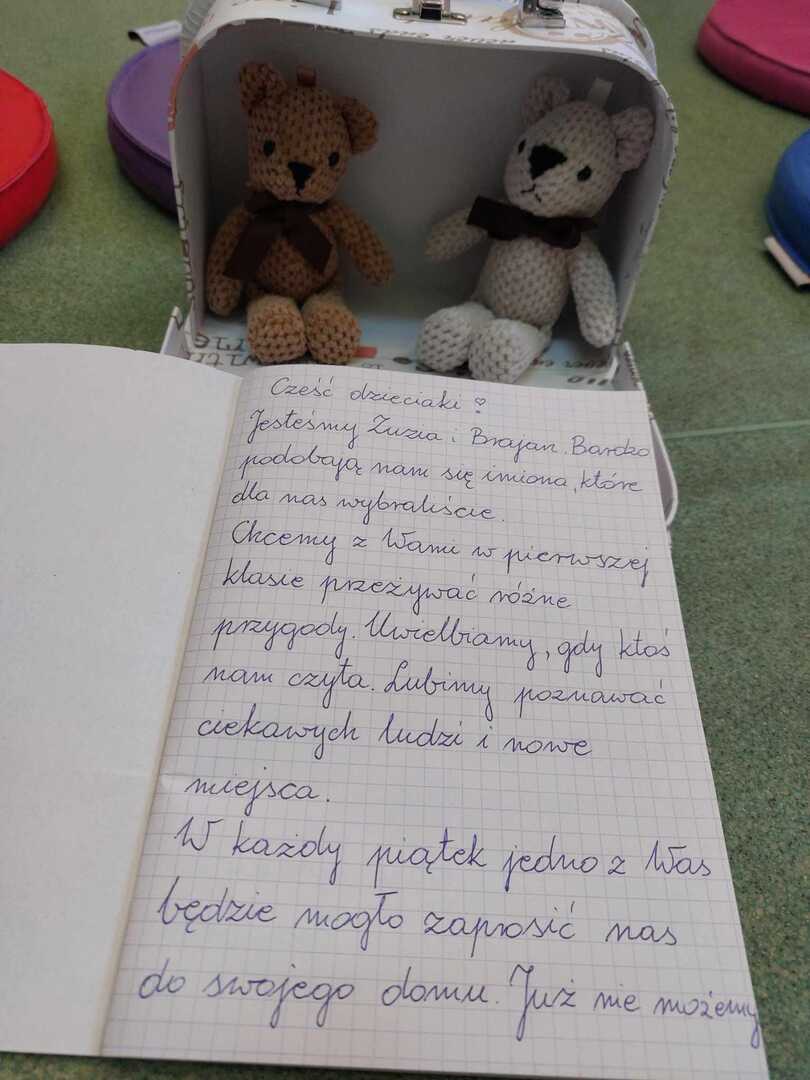 Cześć dzieciaki!
Jesteśmy Zuzia i Brajan. Bardzo
podobają nam się imiona, które
dla nas wybraliście.
Chcemy z Wami w pierwszej
klasie przeżywać różne
przygody. Uwielbiamy, gdy ktoś
nam czyta. Lubimy poznawać
ciekawych ludzi i nowe
miejsca.
W każdy piątek jedno z Was
będzie mogło zaprosić nas
do swojego domu. Już nie możemy